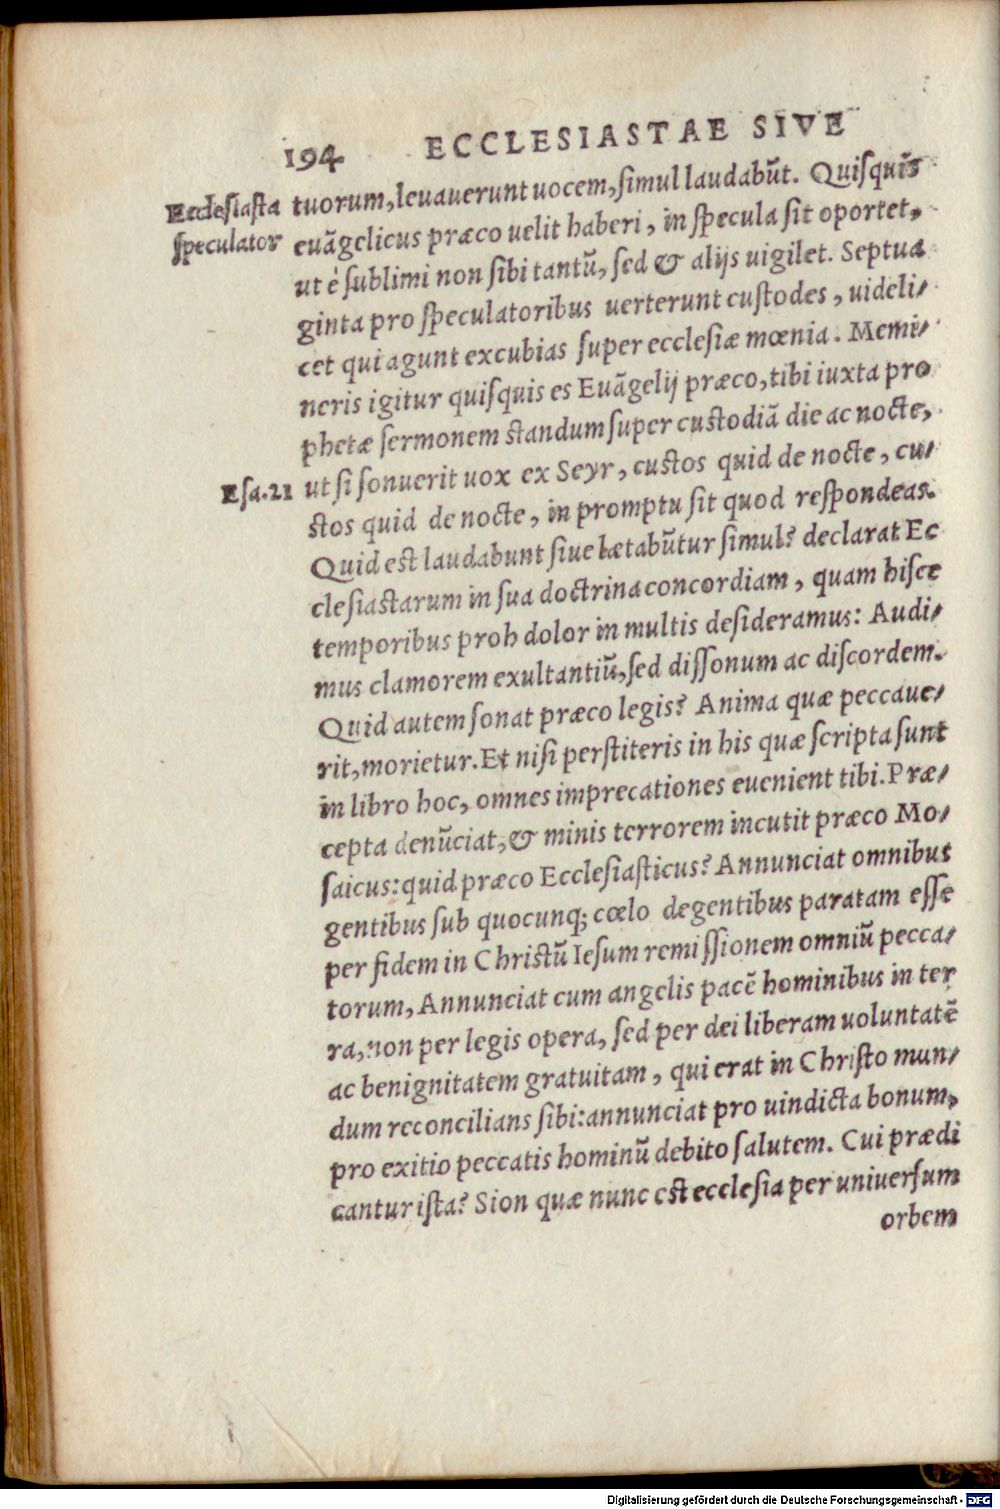 194 ECCLESIASTAE SIVE
Ecclesiasta
speculator
tuorum, leuauerunt uocem, simul laudabũt. Quisquis
euãgelicus præco uelit haberi, in specula sit oportet,
ut è sublimi non sibi tantũ, sed & alijs uigilet. Septua
ginta pro speculatoribus uerterunt custodes, uideli-
cet qui agunt excubias super ecclesiæ mœnia. Memi-
neris igitur quisquis es Euãgelij præco, tibi iuxta pro
phetæ sermonem standum super custodiã die ac nocte,
Esa. 21
ut si sonuerit uox ex Seyr, custos quid de nocte, cu-
stos quid de nocte, in promptu sit quod respondeas.
Quid est laudabunt siue lætabũtur simul? declarat Ec
clesiastarum in sua doctrina concordiam, quam hisce
temporibus proh dolor in multis desideramus: Audi-
mus clamorem exultantiũ, sed dissonum ac discordem.
Quid autem sonat præco legis? Anima quæ peccaue-
rit, morietur. Et nisi perstiteris in his quæ scripta sunt
in libro hoc, omnes imprecationes euenient tibi. Præ-
cepta denũciat, & minis terrorem incutit præco Mo-
saicus: quid præco Ecclesiasticus? Annunciat omnibus
gentibus sub quocunq; cœlo degentibus paratam esse
per fidem in Christũ Iesum remissionem omniũ pecca-
torum, Annunciat cum angelis pacẽ hominibus in ter
ra, non per legis opera, sed per dei liberam uoluntatẽ
ac benignitatem gratuitam, qui erat in Christo mun-
dum reconcilians sibi: annunciat pro uindicta bonum,
pro exitio peccatis hominũ debito salutem. Cui prædi
cantur ista? Sion quæ nunc est ecclesia per uniuersum
orbem
Digitalisierung gefördert durch die Deutsche Forschungsgemeinschaft - DFG